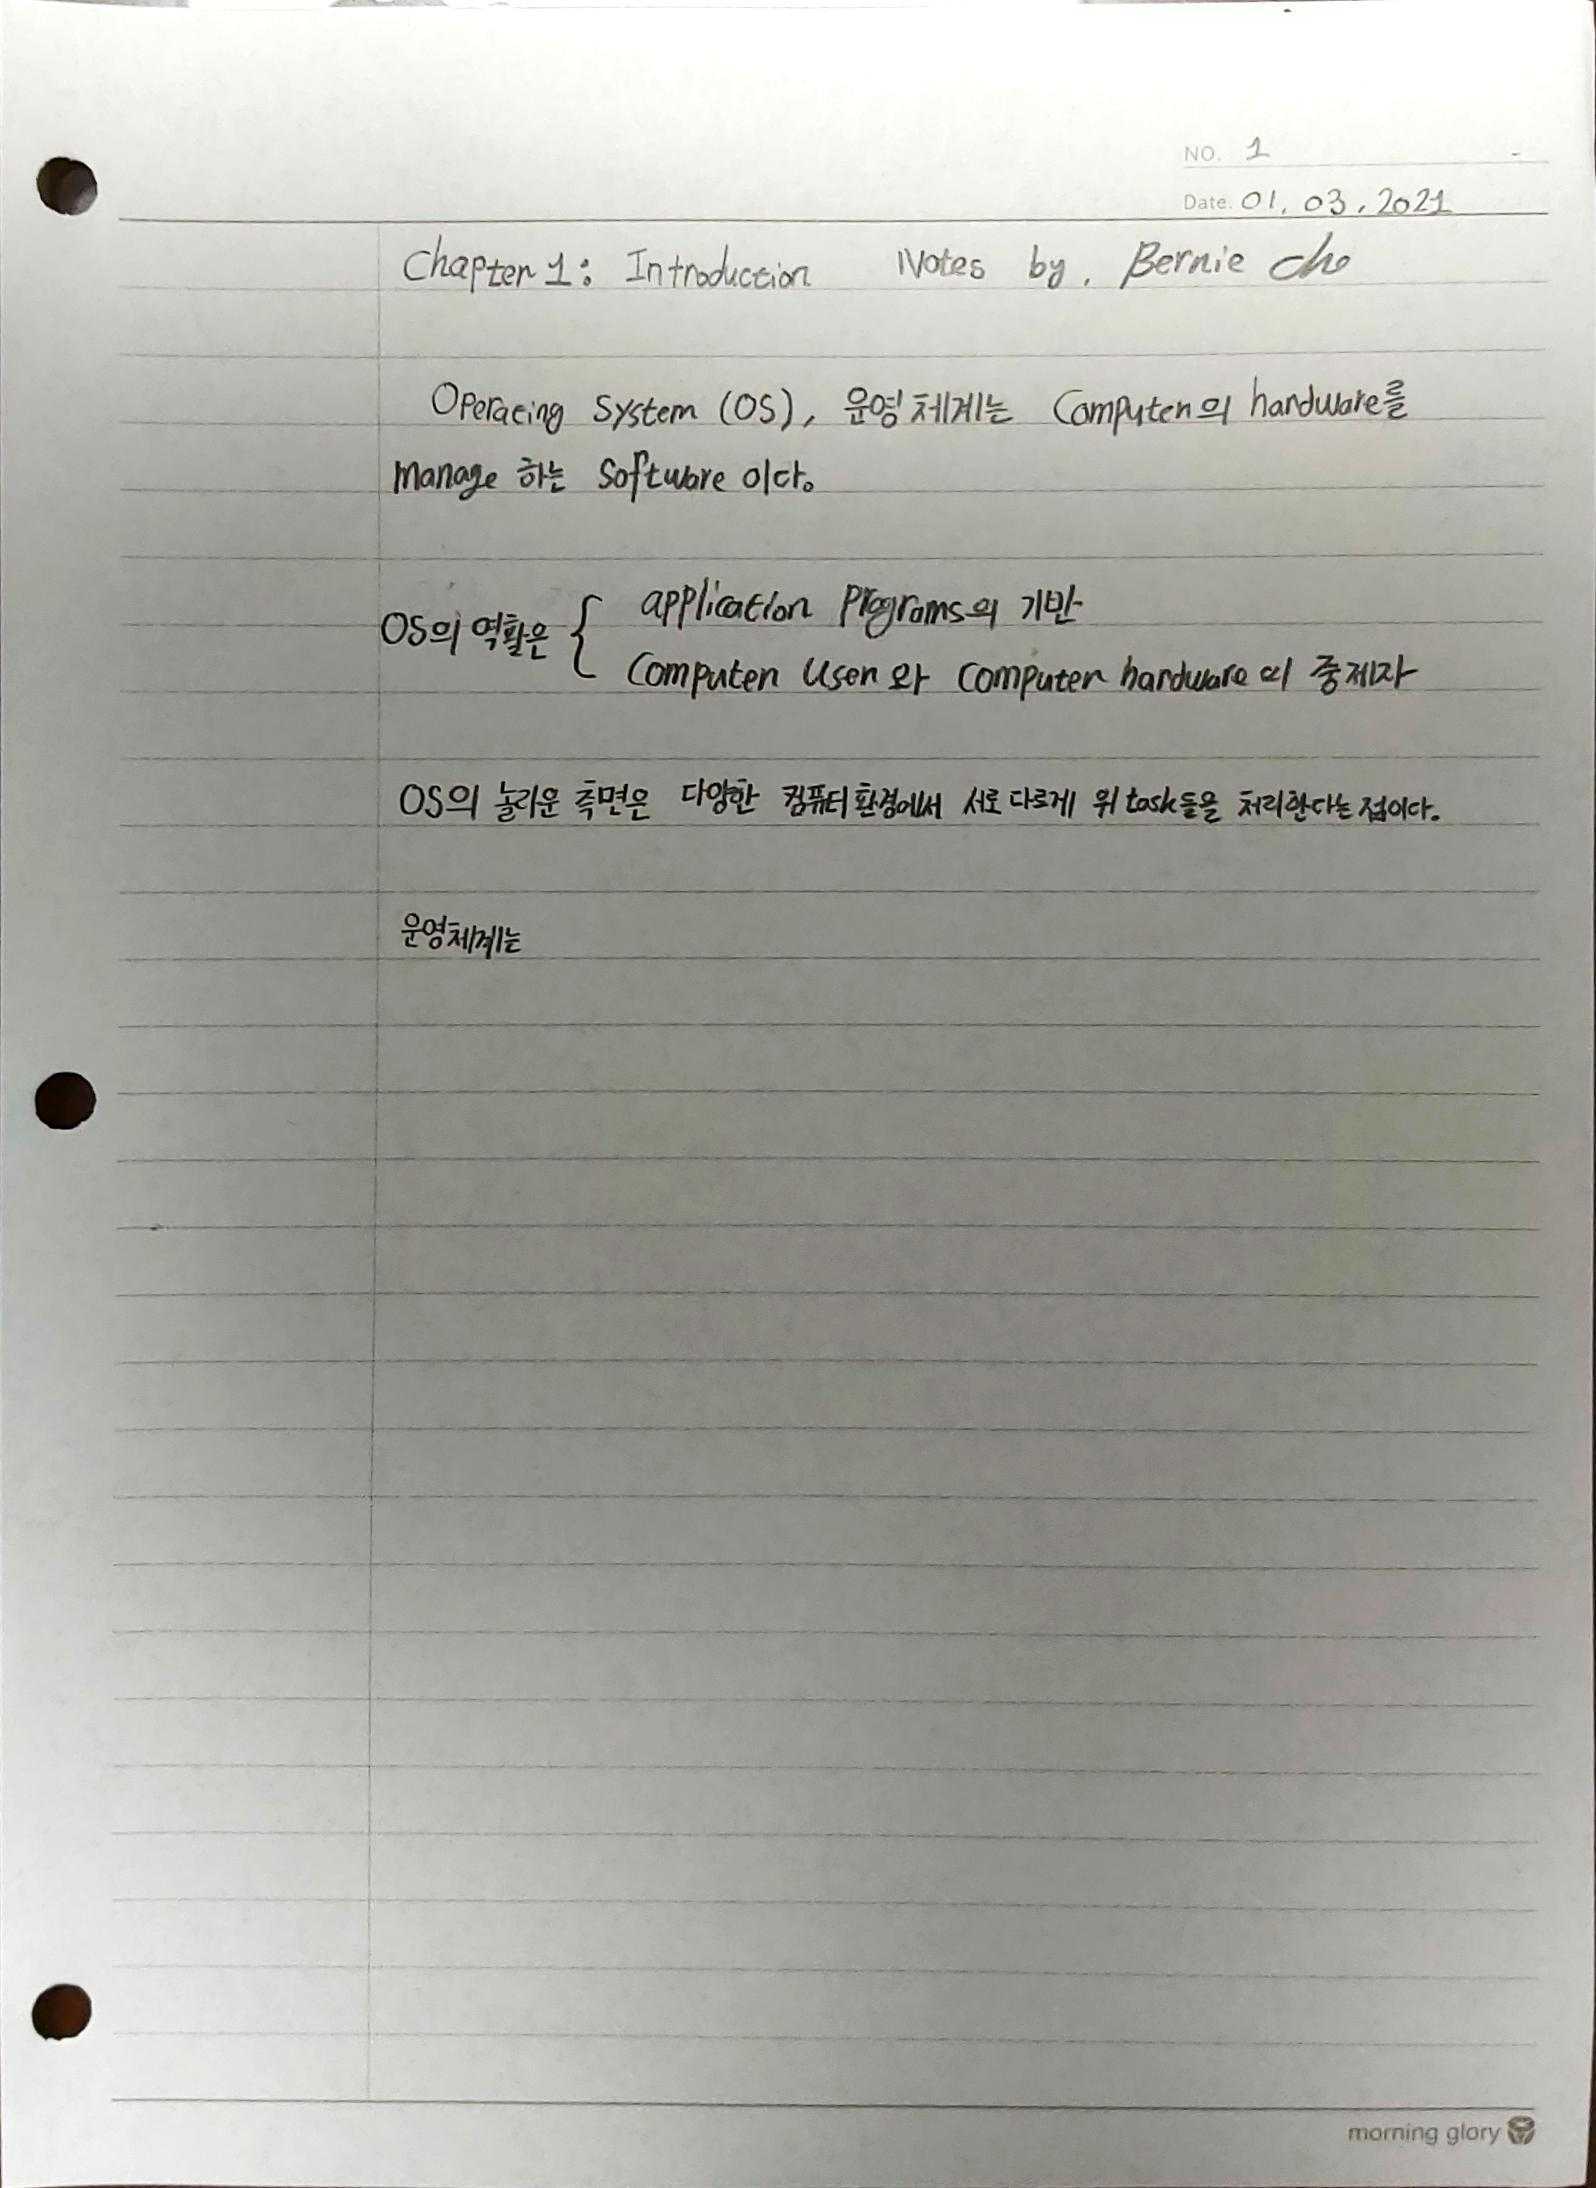 NO. 1
Date. 01, 03, 2021
Chapter 1: Introduction Notes by. Bernie Cho
Operating System (OS), 운영체계는 Computer의 hardware를
manage 하는 Software 이다。
OS의 역활은 { application Programs의 기반
Computer User와 Computer hardware의 중제자
OS의 놀라운 측면은 다양한 컴퓨터 환경에서 서로 다르게 위 task들을 처리한다는 점이다.
운영체계는
morning glory